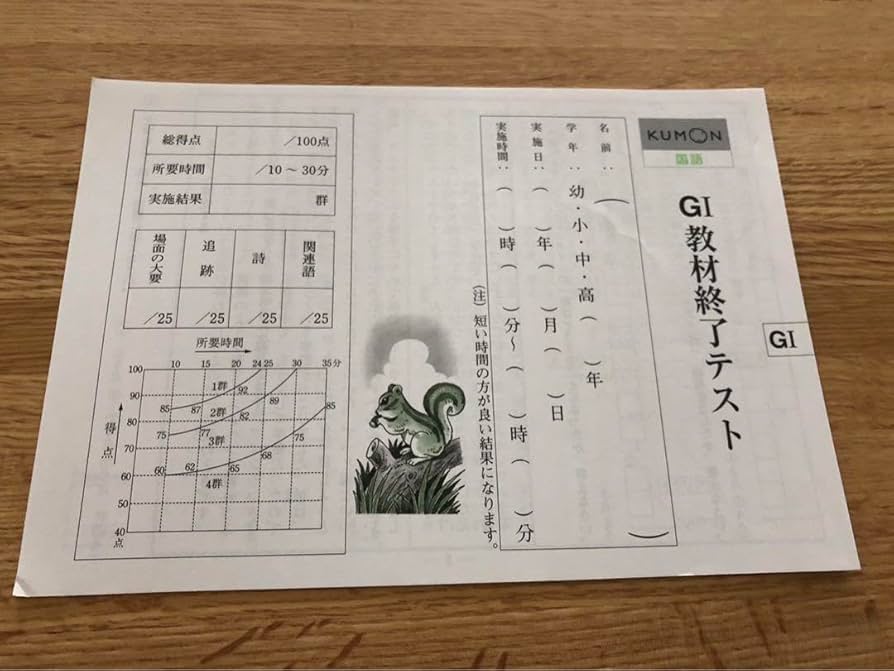 KUMON
国語
GI 教材終了テスト
GI
名前：（　　）
学年：幼・小・中・高（　）年
実施日：（　）年（　）月（　）日
実施時間：（　）時（　）分～（　）時（　）分
（注）短い時間の方が良い結果になります。
総得点 ／100点
所要時間 ／10～30分
実施結果 群
関連語 詩 追跡 場面の大要
／25 ／25 ／25 ／25
所要時間
10 15 20 24 25 30 35分
得点
100
90
80
70
60
50
40点
1群
2群
3群
4群
85 87 92
75 77 82 89
60 62 65 68 75 85